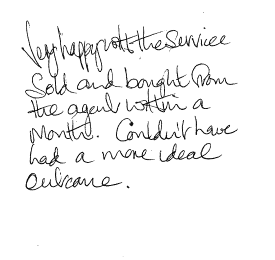 Very happy with the service
Sold and bought from
the agent within a
month. Couldn't have
had a more ideal
outcome.